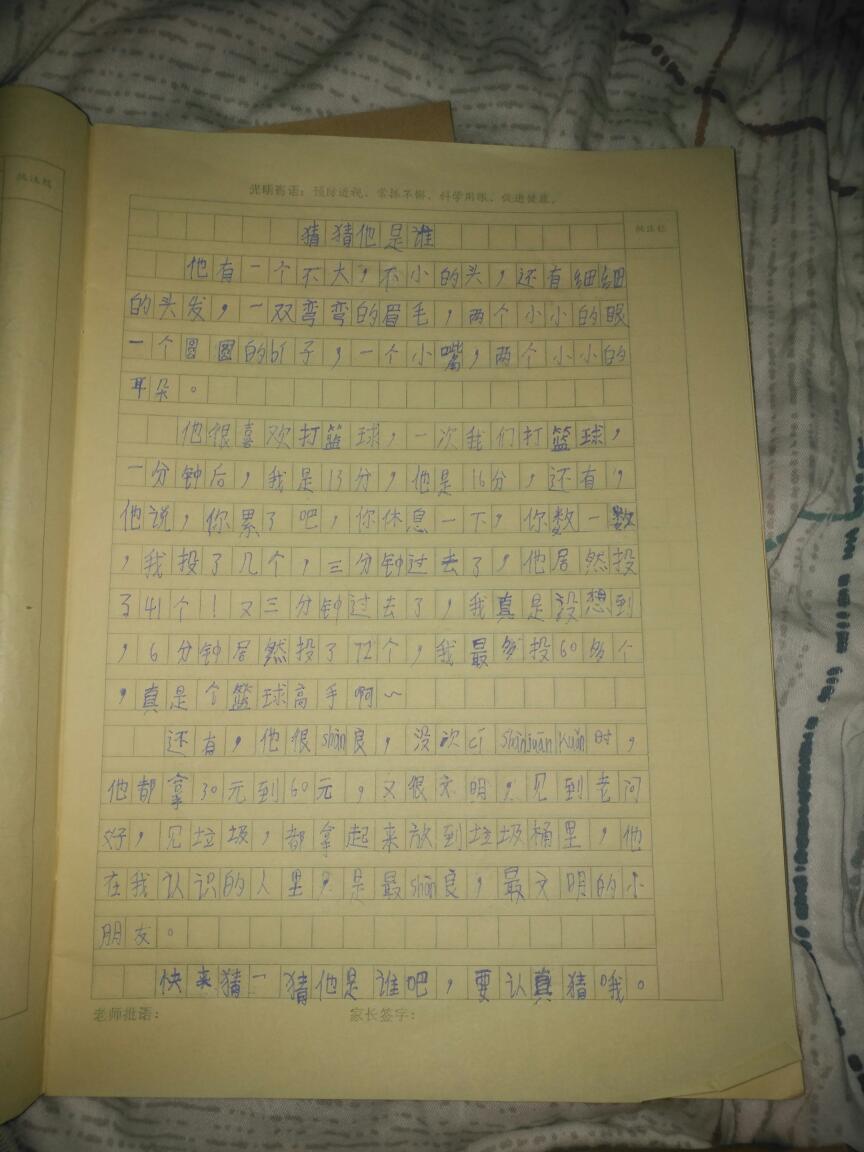 批注栏
光明寄语：预防近视，常抓不懈，科学用眼，促进健康。
批注栏
猜猜他是谁
他有一个不大，不小的头，还有细细
的头发，一双弯弯的眉毛，两个小小的眼
一个圆圆的bí子，一个小嘴，两个小小的
耳朵。
他很喜欢打篮球，一次我们打篮球，
一分钟后，我是13分，他是16分，还有，
他说，你累了吧，你休息一下，你数一数
，我投了几个，三分钟过去了，他居然投
了41个！又三分钟过去了，我真是没想到
，6分钟居然投了72个，我最多投60多个
，真是个篮球高手啊～
还有，他很shàn良，没次cí shànjuān kuǎn时，
他都拿30元到60元，又很文明，见到老问
好，见垃圾，都拿起来放到垃圾桶里，他
在我认识的人里，是最shàn良，最文明的小
朋友。
快来猜一猜他是谁吧，要认真猜哦。
老师批语： 家长签字：